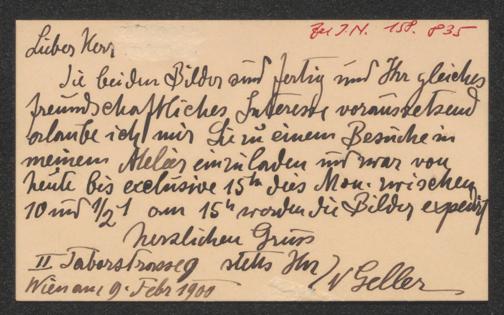 Zu I.N. 158.835
Lieber Herr
Die beiden Bilder sind fertig und Ihr gleiches
freundschaftliches Interesse voraussetzend
erlaube ich mir Sie zu einem Besuche in
meinem Atelier einzuladen und zwar von
heute bis exclusive 15th dies Mon. zwischen
10 und 1/2 1 am 15th werden die Bilder expedirt
herzlichen Gruss
stets Ihr
II Taborstrasse 9
Wien am 9. Febr 1900
Geller